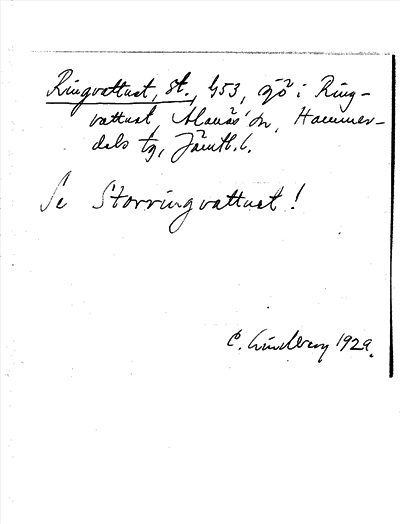 Ringvattnet, St., G53, sjö i Ring-
vattnet, Alanäs sn, Hammer-
dals tg, Jämtl. l.
Se Storringvattnet!
C. Lindberg 1929.